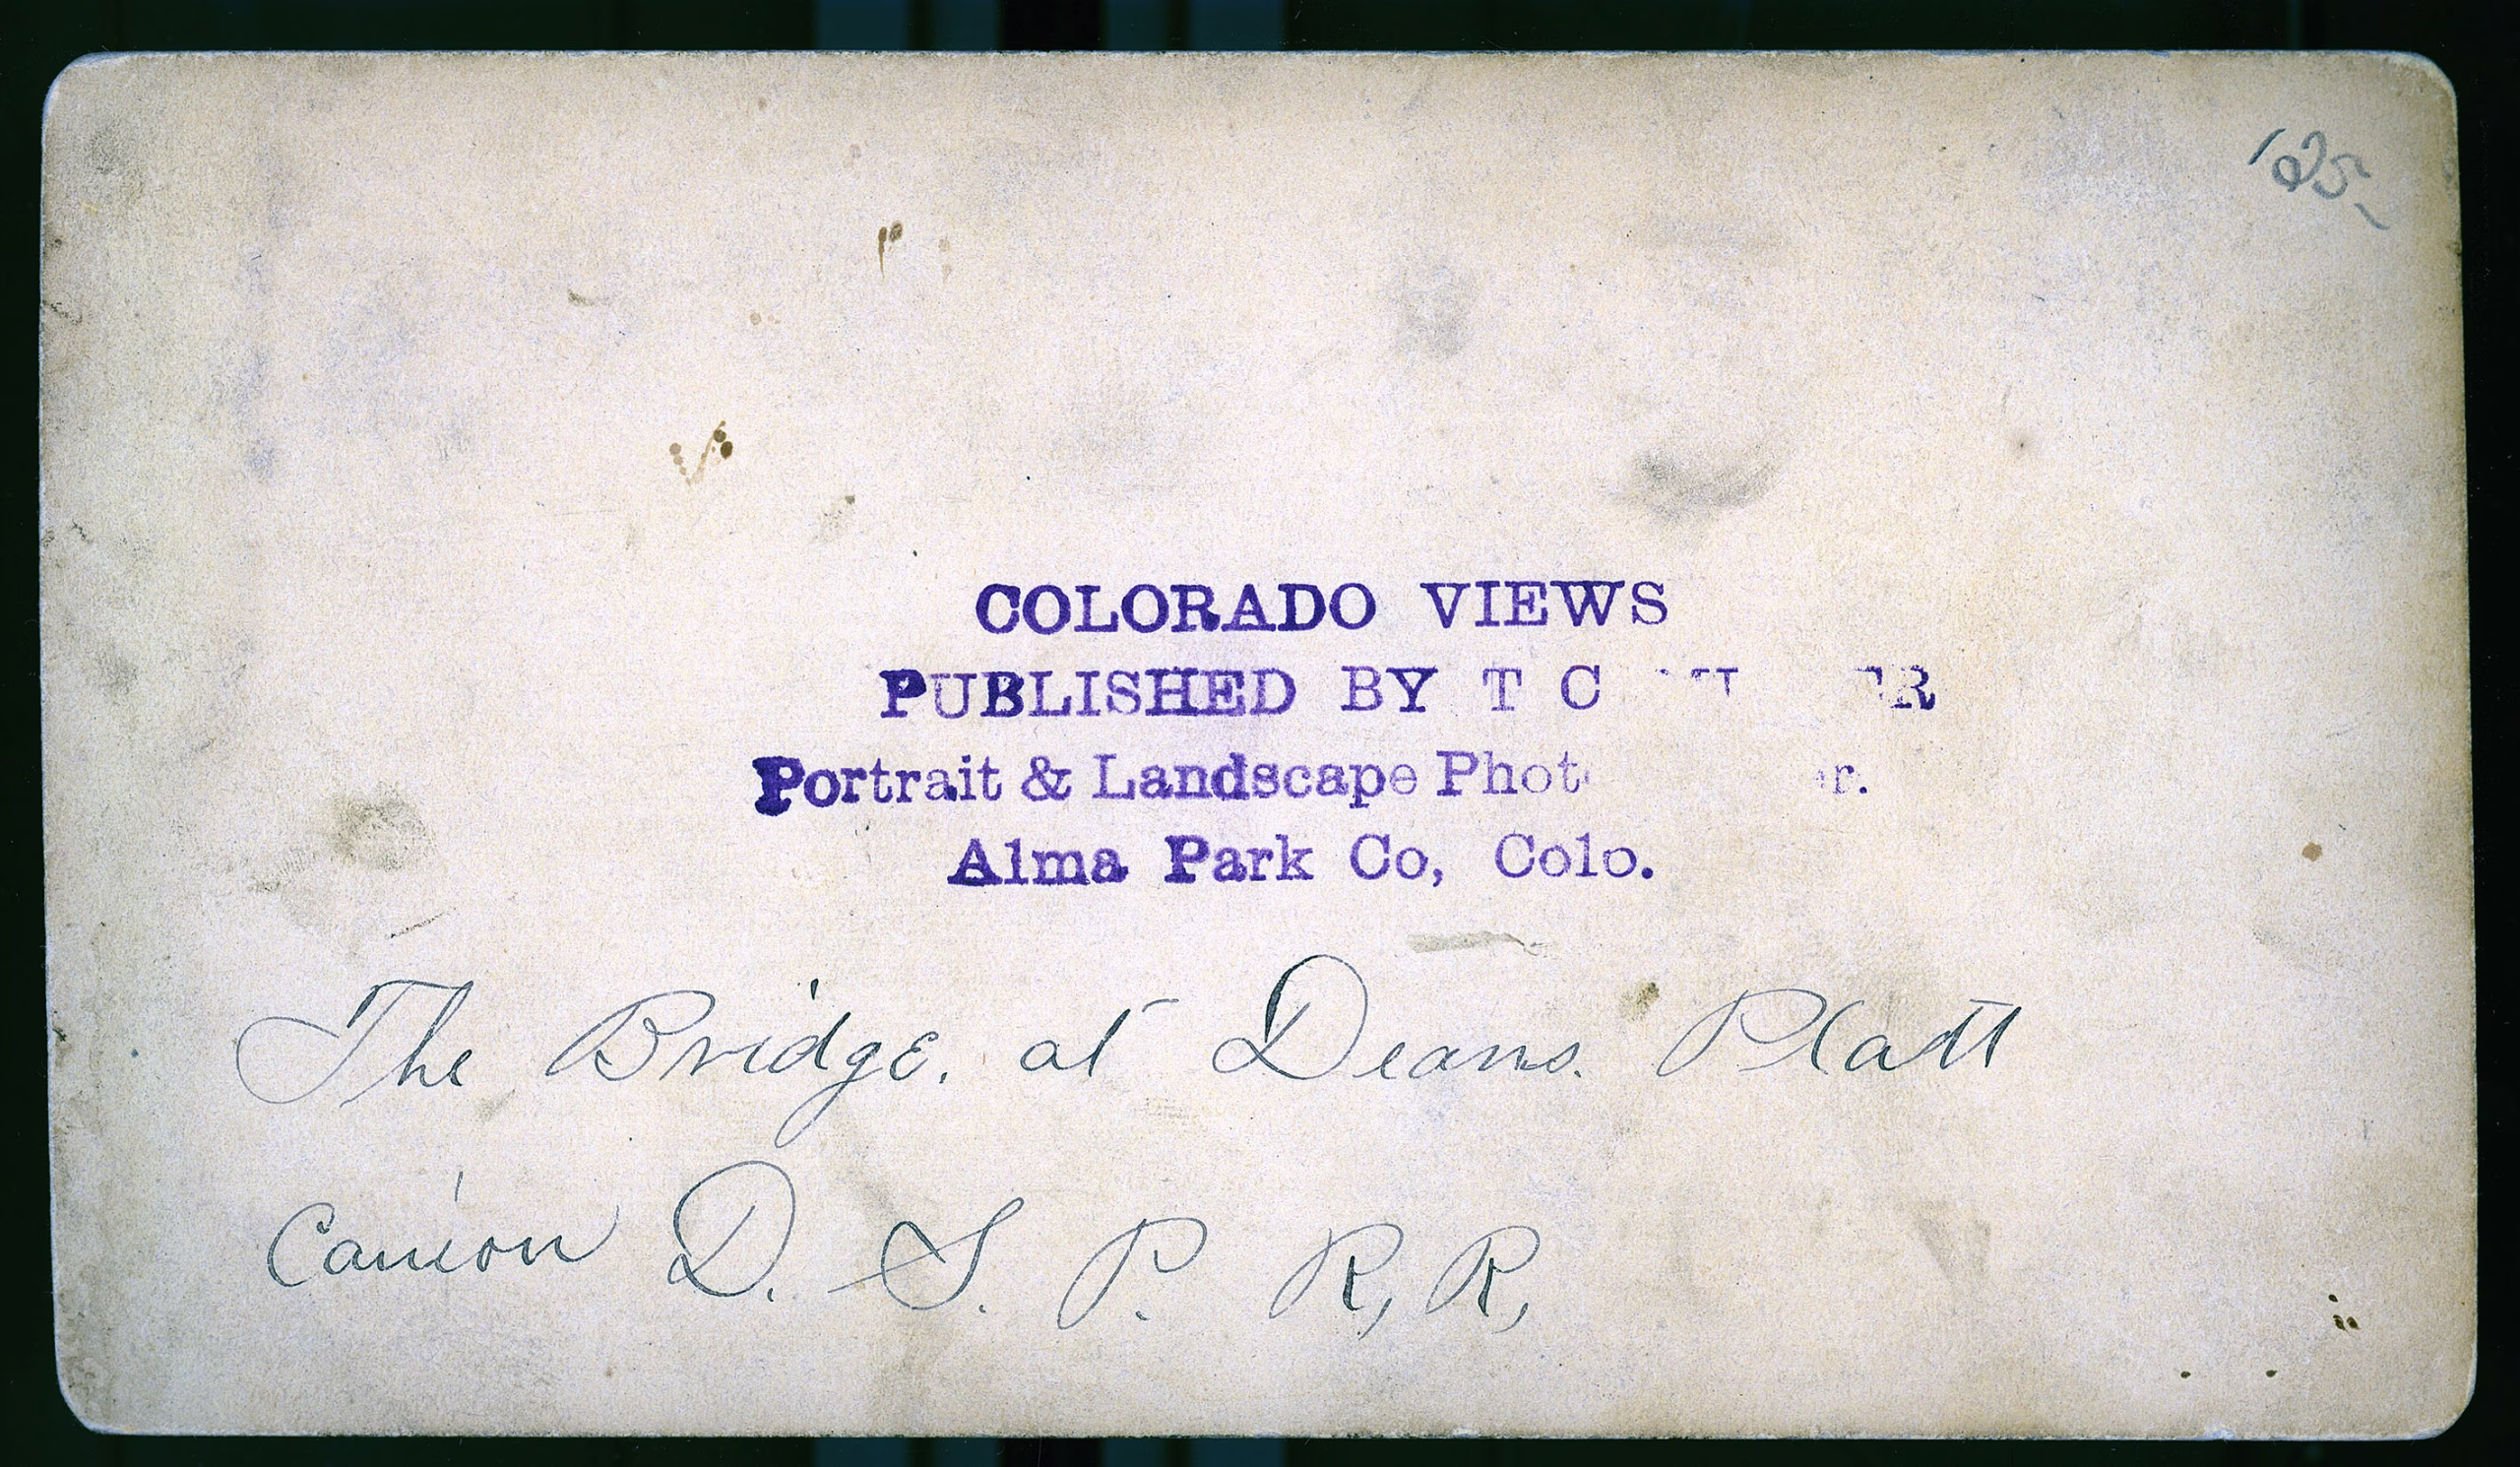 '25
COLORADO VIEWS
PUBLISHED BY T C
Portrait & Landscape
Alma Park Co, Colo.
The Bridge. at Deans. Platt
Canion D. S. P. R, R,